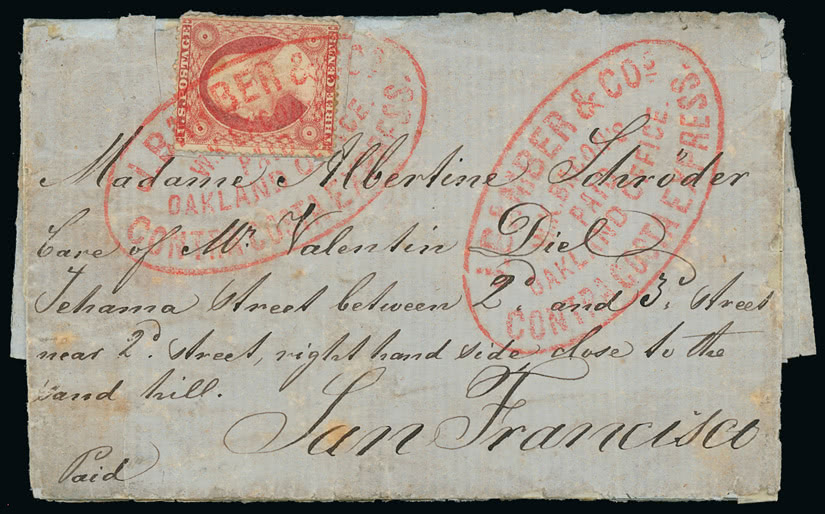 U.S. POSTAGE
THREE CENTS.
BAMBER &
PAID
OAKLAND OFFICE.
CONTRA COSTA EXPRESS.
J. BAMBER & CO'S
PAID
OAKLAND OFFICE.
CONTRA COSTA EXPRESS.
Madame Albertine Schröder
Care of Mr. Valentin Diel
Tehama street between 2d. and 3d. street
near 2d. street, right hand side close to the
sand hill.
San Francisco
Paid